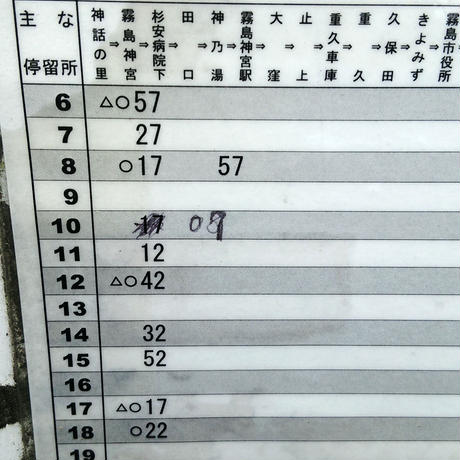 主な停留所
神話の里⇒霧島神宮⇒杉安病院下⇒田口⇒神乃湯⇒霧島神宮駅⇒大窪⇒止上⇒重久車庫⇒重久⇒久保田⇒きよみず⇒霧島市役所
6 △○57
7 27
8 ○17 57
9
10 17 08
11 12
12 △○42
13
14 32
15 52
16
17 △○17
18 ○22
19